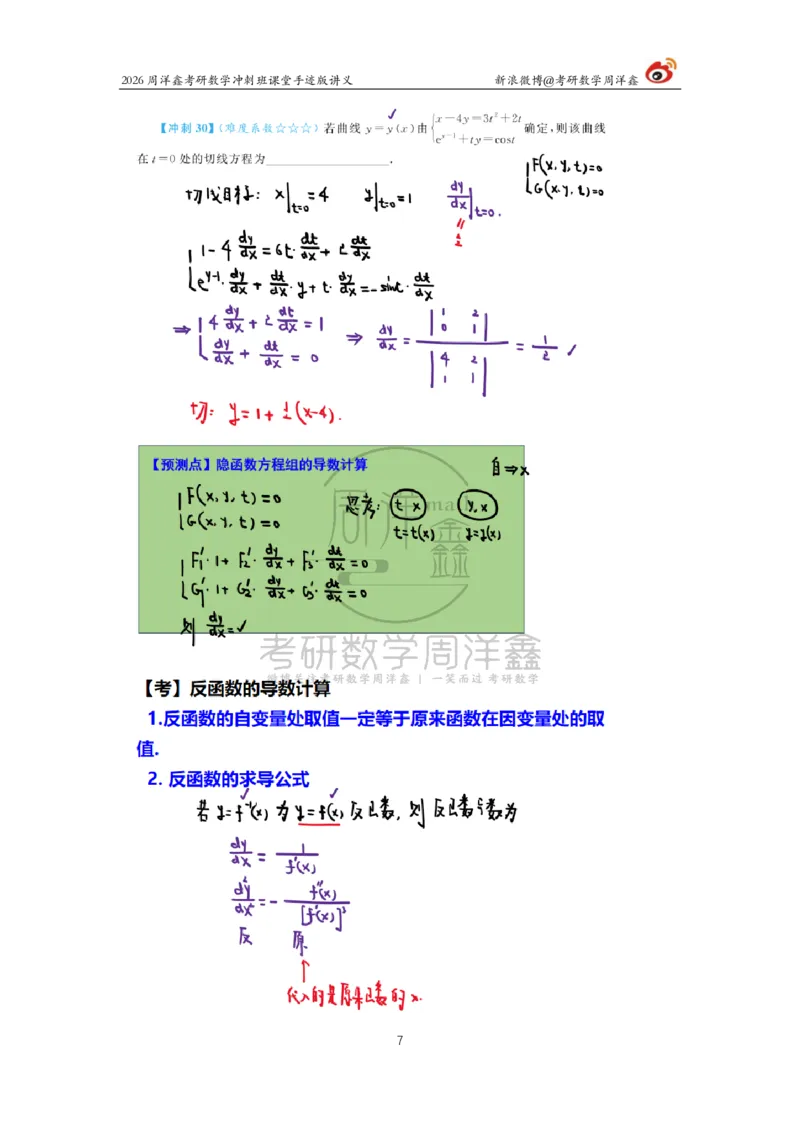 2026 周洋鑫考研数学冲刺班课堂手迹版讲义 新浪微博@考研数学周洋鑫
【冲刺 30】(难度系数☆☆☆)若曲线 y=y(x)由{x-4y=3t²+2t, e^{y-1}+ty=cost 确定,则该曲线
在 t=0 处的切线方程为____________.
{F(x,y,t)=0
{G(x,y,t)=0
切线目标: x|_{t=0}=4 y|_{t=0}=1 dy/dx|_{t=0}.
1/2
{1-4 dy/dx=6t·dt/dx+2 dt/dx
{e^{y-1}·dy/dx+dt/dx·y+t·dy/dx=-sint·dt/dx
⇒{4 dy/dx+2 dt/dx=1
{dy/dx+dt/dx=0
⇒ dy/dx=|1 2; 0 1|/|4 2; 1 1|=1/2 ✓
切: y=1+1/2(x-4).
【预测点】隐函数方程组的导数计算
自⇒x
{F(x,y,t)=0
{G(x,y,t)=0
思考: t x y,x
t=t(x) y=y(x)
{F₁'·1+F₂'·dy/dx+F₃'·dt/dx=0
{G₁'·1+G₂'·dy/dx+G₃'·dt/dx=0
则 dy/dx=✓
周洋鑫 math
考研数学周洋鑫
微博关注考研数学周洋鑫 | 一笑而过 考研数学
【考】反函数的导数计算
1.反函数的自变量处取值一定等于原来函数在因变量处的取
值.
2. 反函数的求导公式
若 y=f⁻¹(x) 为 y=f(x) 反函数, 则反函数导数为
dy/dx=1/f'(x)
d²y/dx²=-f''(x)/[f'(x)]³
反 原
↑
代入的是原来函数的 x.
7